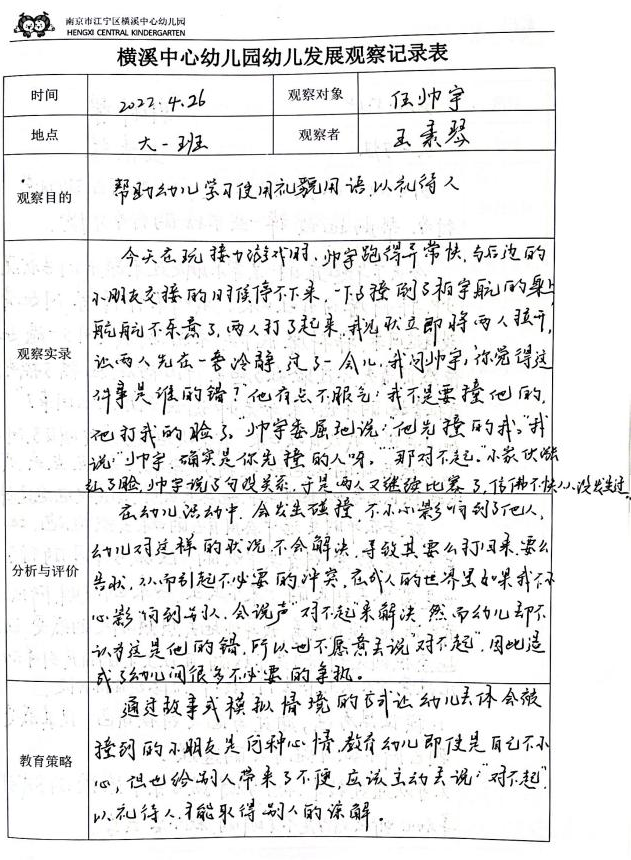 南京市江宁区横溪中心幼儿园
HENGXI CENTRAL KINDERGARTEN
横溪中心幼儿园幼儿发展观察记录表
时间 2022.4.26 观察对象 任帅宇
地点 大一班 观察者 王素琴
观察目的 帮助幼儿学习使用礼貌用语,以礼待人
观察实录
今天在玩接力游戏时,帅宇跑得异常快,与后边的
小朋友交接的时候停不下来,一下子撞倒了 宇航的
航航不乐意了,两人打了起来,我见状立即将两人拉开,
让两人先在一旁冷静,过了一会儿,我问帅宇:"你觉得这
件事是谁的错?"他有点不服气:"我不是要撞他的,
他打我的脸了。"帅宇委屈地说:"他先撞的我。"我
说:"帅宇,确实是你先撞的人呀。""那对不起。"小家伙涨
红了脸,帅宇说了句没关系,于是两人又继续比赛了,仿佛不快 没发生过
分析与评价
在幼儿活动中,会发生碰撞,不小心影响到了他人,
幼儿对这样的状况不会解决,导致其要么打回来,要么
告状,从而引起不必要的冲突,在成人的世界里如果我不小
心影响到别人,会说声"对不起"来解决,然而幼儿却不
认为这是他的错,所以也不愿意去说"对不起",因此造
成了幼儿间很多不必要的争执。
教育策略
通过故事或模拟情境的方式让幼儿去体会被
撞到的小朋友是何种心情,教育幼儿即使是自己不小
心,但也给别人带来了不便,应该主动去说:"对不起"
以礼待人才能取得别人的谅解。